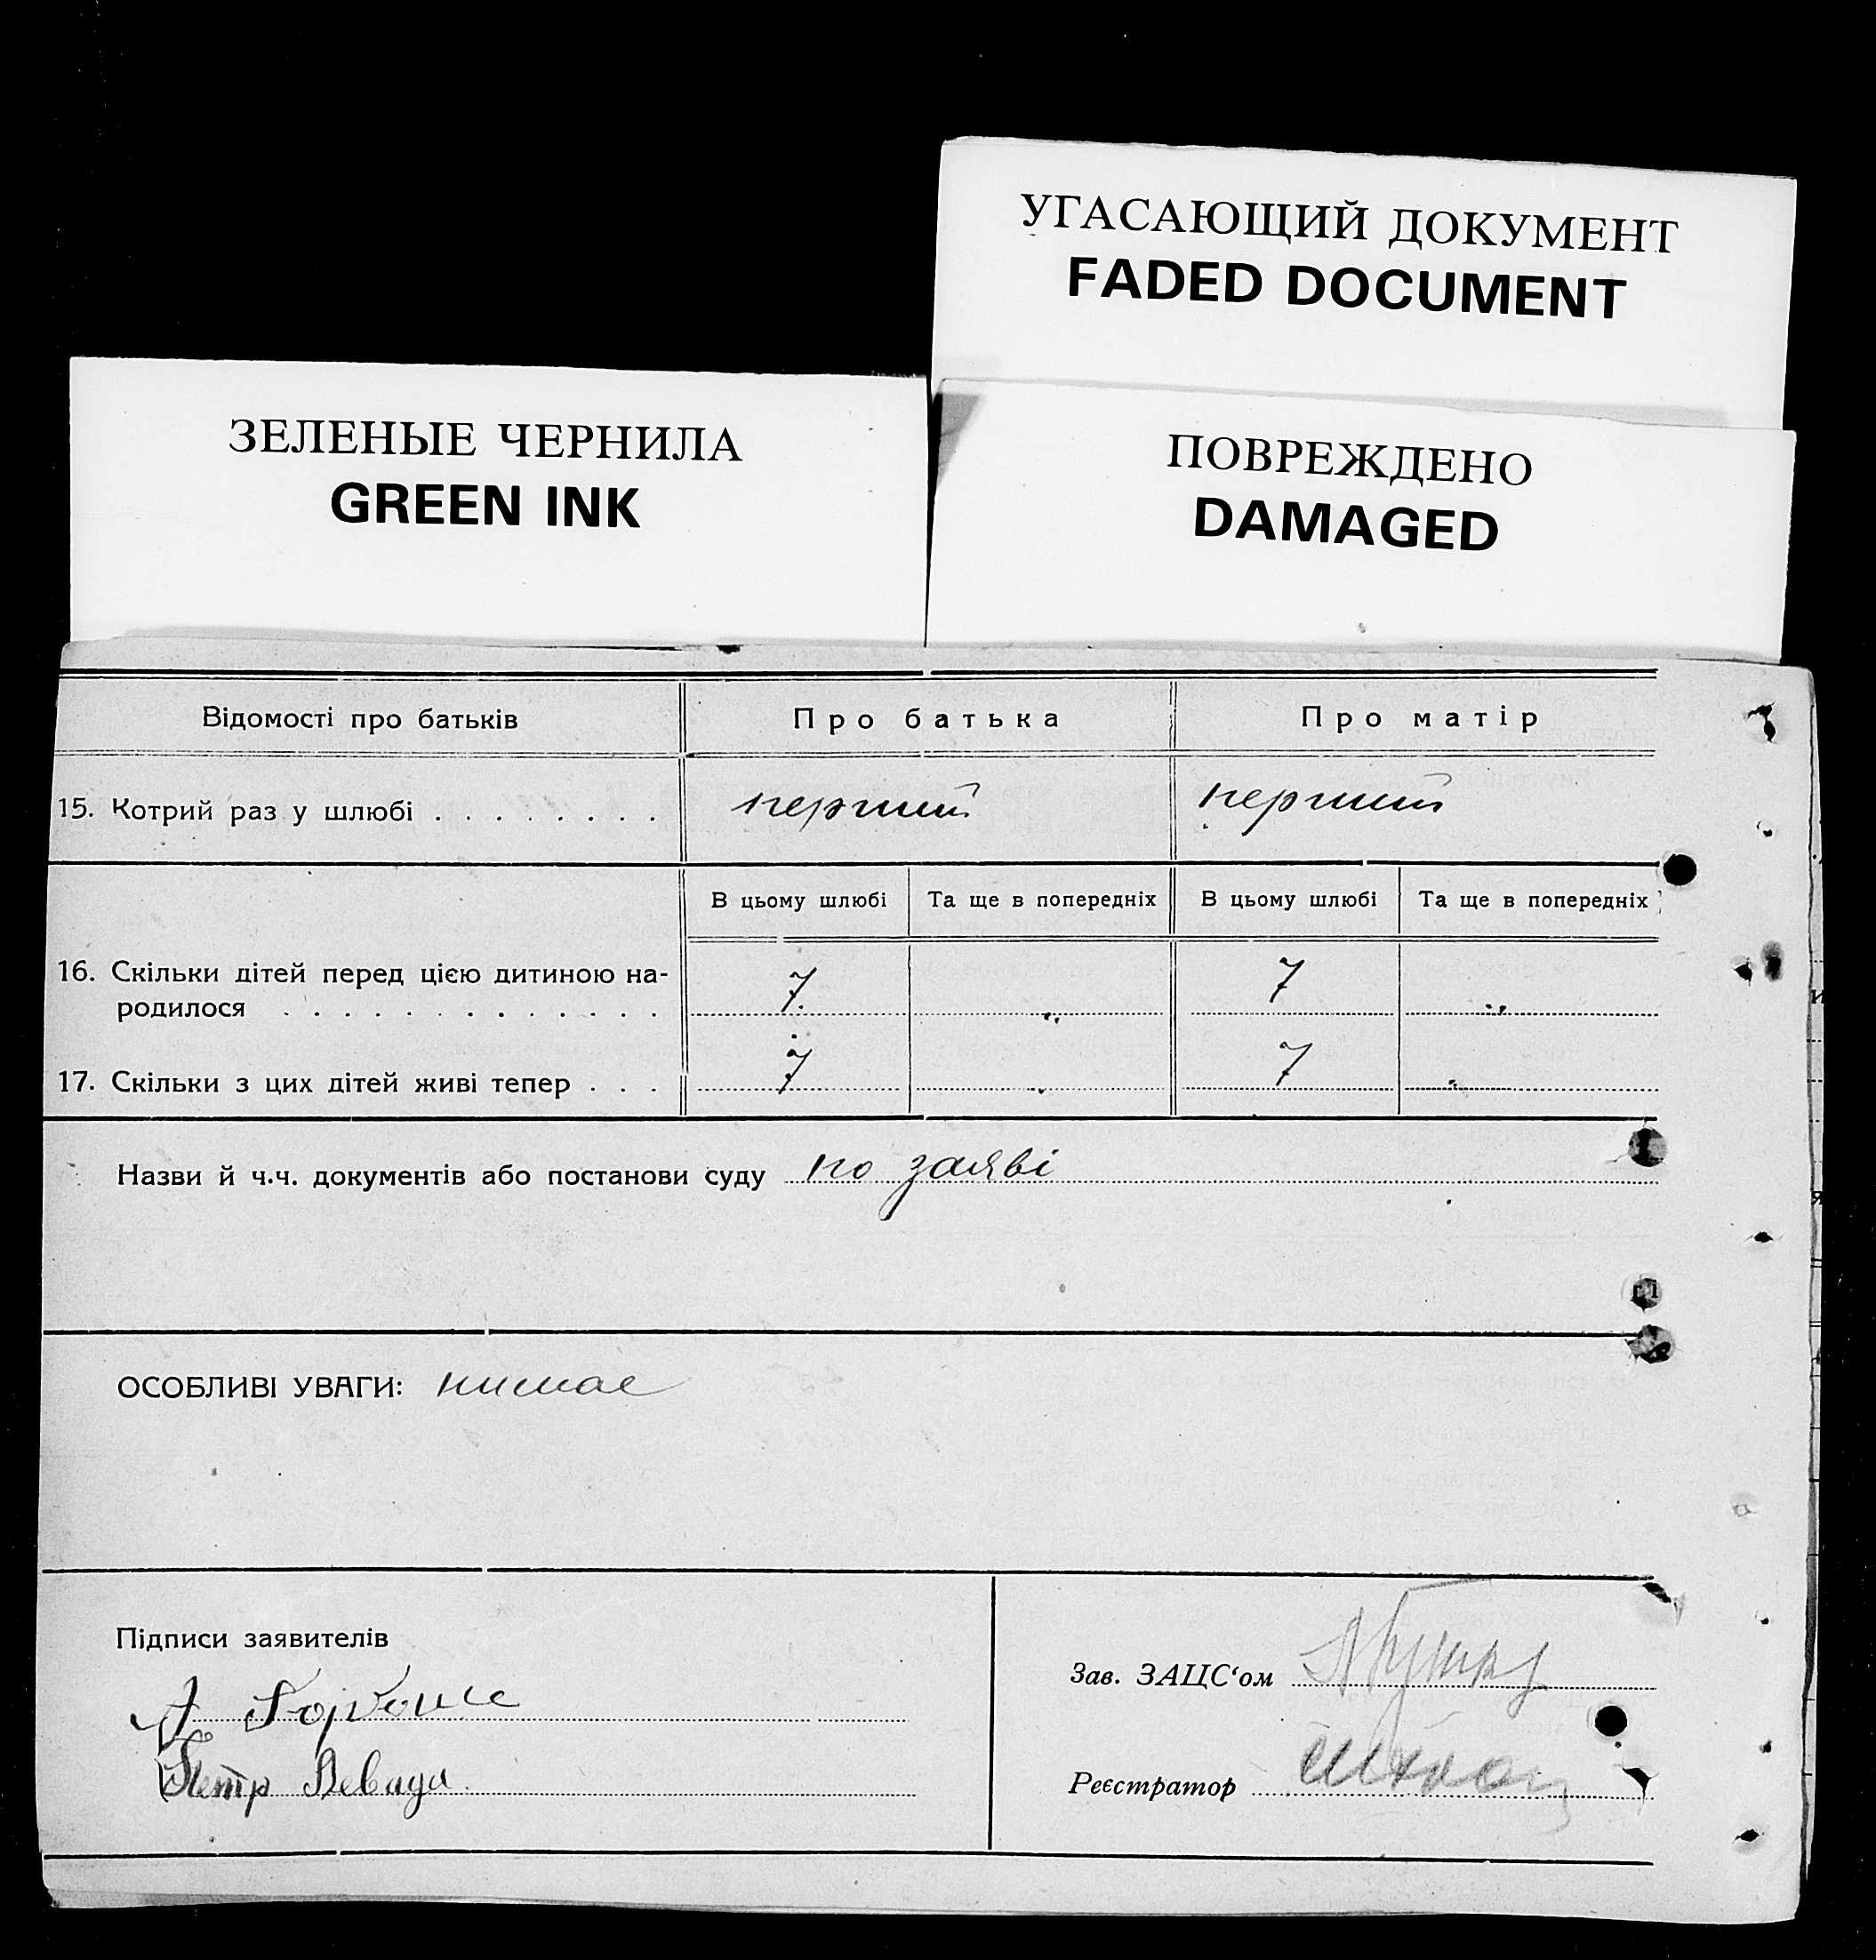 УГАСАЮЩИЙ ДОКУМЕНТ
FADED DOCUMENT
ЗЕЛЕНЫЕ ЧЕРНИЛА
GREEN INK
ПОВРЕЖДЕНО
DAMAGED
Відомості про батьків Про батька Про матір
15. Котрий раз у шлюбі . . . . . . . . перший перший
В цьому шлюбі Та ще в попередніх В цьому шлюбі Та ще в попередніх
16. Скільки дітей перед цією дитиною на-
родилося . . . . . . . . . . . . . 7 „ 7 „
17. Скільки з цих дітей живі тепер . . . 7 „ 7 „
Назви й ч.ч. документів або постанови суду по заяві
ОСОБЛИВІ УВАГИ: нимає
Підписи заявителів
Зав. ЗАЦС‘ом
Петр Левада
Реєстратор